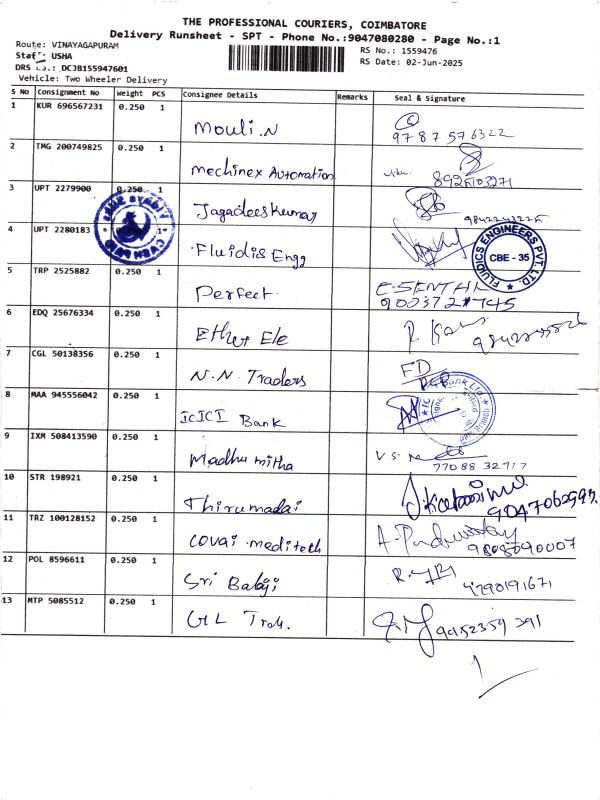 THE PROFESSIONAL COURIERS, COIMBATORE
Delivery Runsheet - SPT - Phone No.:9047080280 - Page No.:1
Route: VINAYAGAPURAM
RS No.: 1559476
Staff: USHA
RS Date: 02-Jun-2025
DRS No.: DCJB155947601
Vehicle: Two Wheeler Delivery
S No Consignment No Weight PCS Consignee Details Remarks Seal & Signature
1 KUR 696567231 0.250 1 Mouli.N
9787576322
2 TMG 200749825 0.250 1 Mechinex Automation
8925103271
3 UPT 2279900 0.250 1 Jagadeeskumar
4 UPT 2280183 1 Fluidis Engg
FLUIDICS ENGINEERS PVT. LTD.
CBE - 35
5 TRP 2525882 0.250 1 Perfect
E.SENTHIL
6 EDQ 25676334 0.250 1 Ether Ele
7 CGL 50138356 0.250 1 N.N. Traders
FD
8 MAA 945556042 0.250 1 ICICI Bank
9 IXM 508413590 0.250 1 Madhu mitha
77088 32717
10 STR 198921 0.250 1 Thirumalai
11 TRZ 100128152 0.250 1 Covai meditech
12 POL 8596611 0.250 1 Sri Balaji
13 MTP 5085512 0.250 1